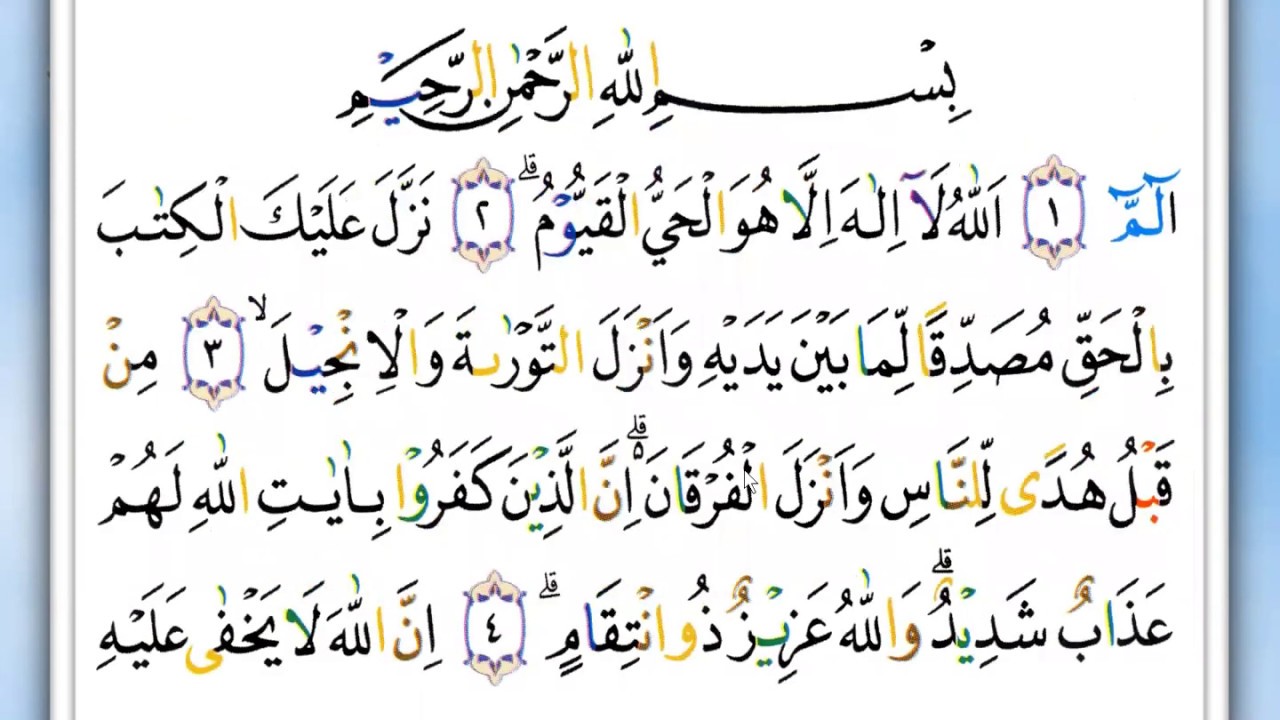 بِسْمِ اللّٰهِ الرَّحْمٰنِ الرَّحِيْمِ
الٓمّٓ ١ اَللّٰهُ لَآ اِلٰهَ اِلَّا هُوَ الْحَيُّ الْقَيُّوْمُۗ ٢ نَزَّلَ عَلَيْكَ الْكِتٰبَ
بِالْحَقِّ مُصَدِّقًا لِّمَا بَيْنَ يَدَيْهِ وَاَنْزَلَ التَّوْرٰىةَ وَالْاِنْجِيْلَۙ ٣ مِنْ
قَبْلُ هُدًى لِّلنَّاسِ وَاَنْزَلَ الْفُرْقَانَ ەۗ اِنَّ الَّذِيْنَ كَفَرُوْا بِاٰيٰتِ اللّٰهِ لَهُمْ
عَذَابٌ شَدِيْدٌۗ وَاللّٰهُ عَزِيْزٌ ذُو انْتِقَامٍۗ ٤ اِنَّ اللّٰهَ لَا يَخْفٰى عَلَيْهِ